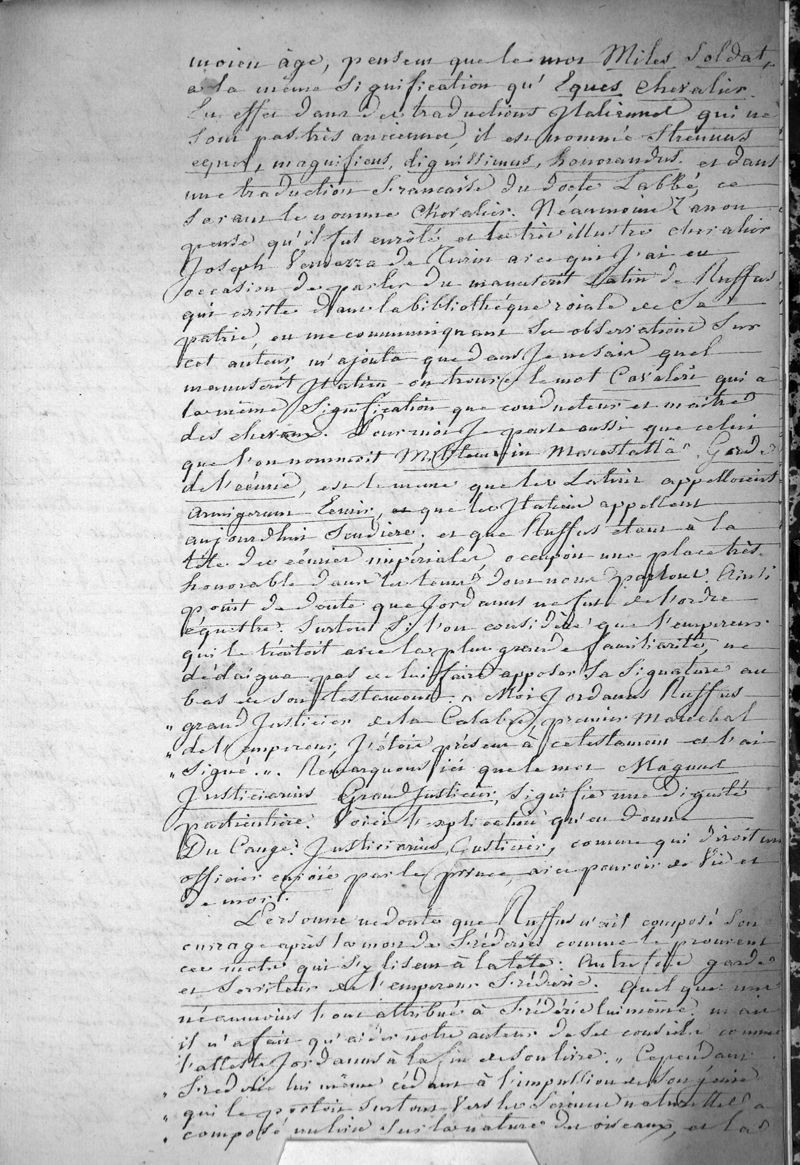 moien âge, pensent que le mot Miles Soldat,
a la même signification qu'Eques chevalier.
En effet dans des traductions Italiennes qui ne
sont pas très anciennes, il est nommé Strenuus
eques, magnificus, dignissimus, honorandus. et dans
une traduction francaise du docte Labbé, ce
savant le nomme Chevalier. Néanmoins Zanon
pense qu'il fut enrôlé et le très illustre chevalier
Joseph Vernazza de Turin avec qui j'ai eu
occasion de parler du manuscrit Latin de Ruffus
qui existe dans la bibliothéque roiale de Sa
patrie, en me communiquant ses observations sur
cet auteur, m'ajouta que dans je ne sais quel
manuscrit Italien on trouve le mot Cavaleri qui a
la même signification que conducteur et maître
des chevaux. Pour moi je pense aussi que celui
que l'on nommoit in Marestalla Garde
de l'écurie, est le même que les Latins appelloient
armigerum Ecuier, et que les Italiens appellent
aujourdhui Scudiere. et que Ruffus étant à la
tête des écuries impériales, occupoit une place très
honorable dans les tems dont nous parlons. Ainsi
point de doute que Jordanus ne fut de l'ordre
équestre. Surtout si l'on considère que l'empereur
qui le traitoit avec la plus grande familiarité, ne
dédaigna pas de lui faire apposer sa signature au
bas de son testament. « Moi Jordanus Ruffus
" grand Justicier de la Calabre, premier Marechal
" de l'empereur, J'étois présent à ce testament et l'ai
" signé. ". Remarquons ici que le mot Magnus
Justiciarius Grand Justicier, signifie une dignité
particulière. Voici l'explication qu'en donne
Du Cange. Justiciarius, Justicier, comme qui diroit un
officier envoié par le prince, avec pouvoir de Vie et
de mort.
Personne ne doute que Ruffus n'ait composé son
ouvrage après la mort de Fréderic comme le prouvent
ces mots qui s'y lisent à la tête. Autrefois garde
et serviteur de l'empereur Fréderic. Quelques uns
néanmoins l'ont attribué à Frédéric lui même, mais
il n'a fait qu'aider notre auteur de ses conseils comme
l'atteste Jordanus à la fin de son livre. " Cependant
" Fréderic lui même cédant à l'impulsion de son génie
" qui le portoit surtout vers les sciences naturelles a
" composé un livre sur la nature des oiseaux, et la